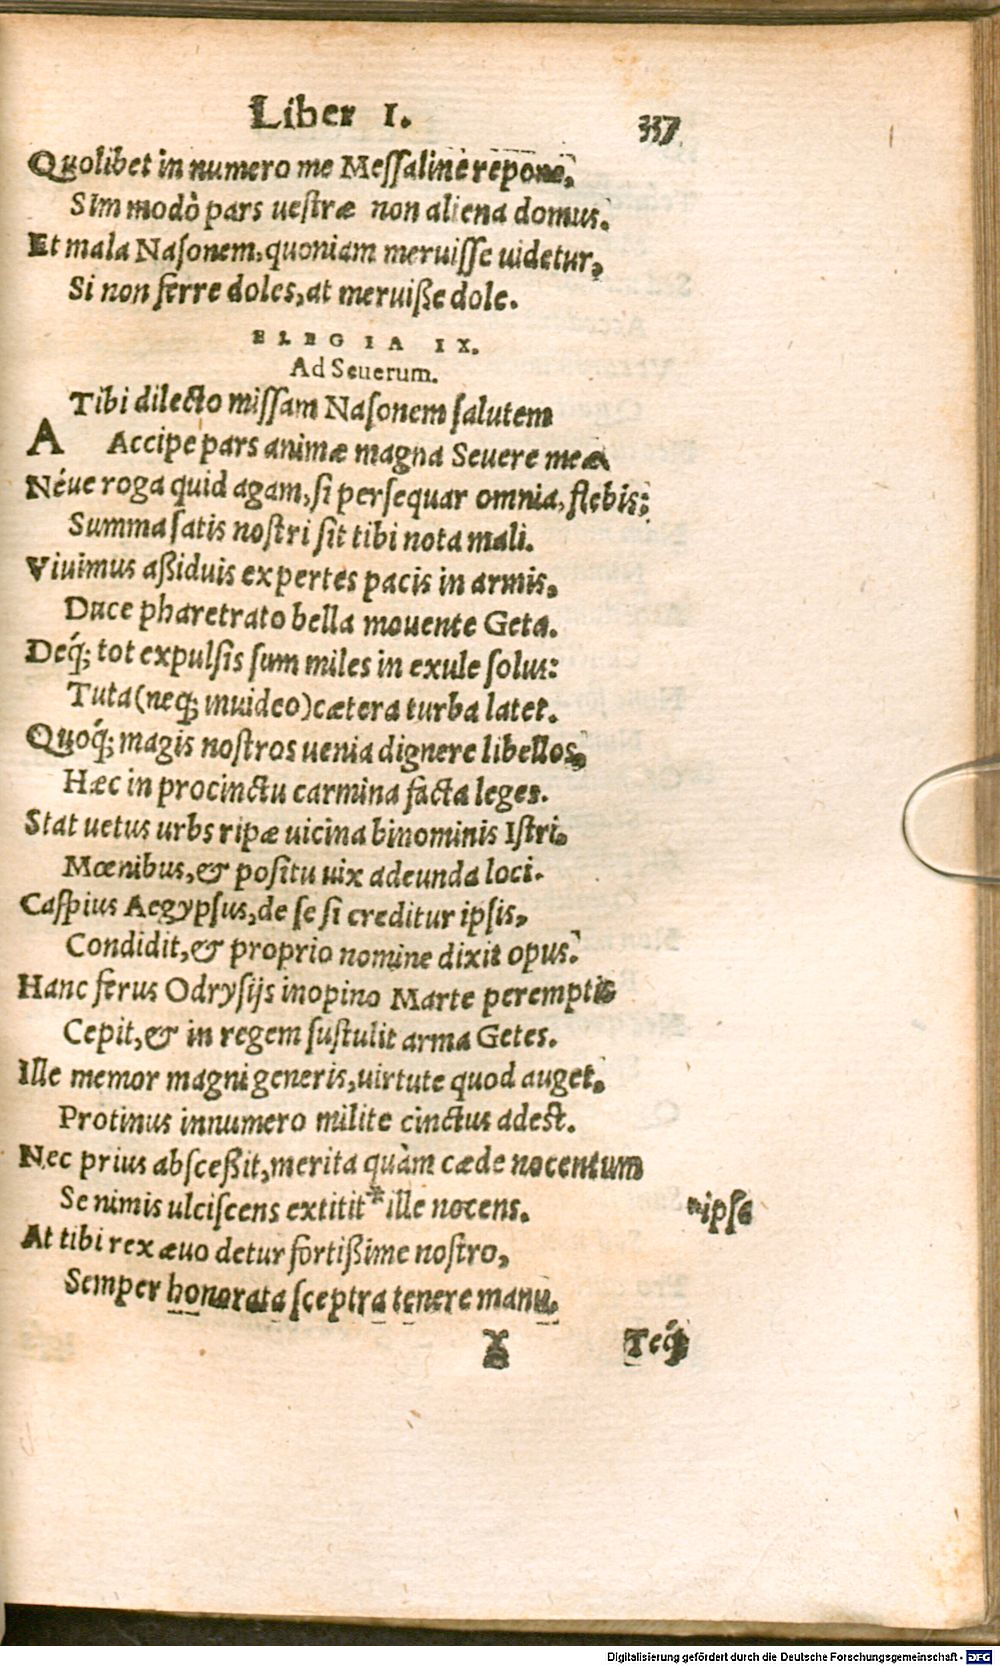 Liber I.
337
Quolibet in numero me Messaline repone,
Sim modò pars uestræ non aliena domus.
Et mala Nasonem, quoniam meruisse uidetur,
Si non ferre doles, at meruiße dole.
ELEGIA IX.
Ad Seuerum.
A Tibi dilecto missam Nasonem salutem
Accipe pars animæ magna Seuere meæ
Néue roga quid agam, si persequar omnia, flebis:
Summa satis nostri sit tibi nota mali.
Viuimus aßiduis expertes pacis in armis,
Duce pharetrato bella mouente Geta.
Deq́; tot expulsis sum miles in exule solus:
Tuta (neq; inuideo) cætera turba latet.
Quoq́; magis nostros uenia dignere libellos,
Hæc in procinctu carmina facta leges.
Stat uetus urbs ripæ uicina binominis Istri,
Mœnibus, & positu uix adeunda loci.
Caspius Aegypsus, de se si creditur ipsis,
Condidit, & proprio nomine dixit opus.
Hanc ferus Odrysijs inopino Marte peremptis
Cepit, & in regem sustulit arma Getes.
Ille memor magni generis, uirtute quod auget,
Protinus innumero milite cinctus adest.
Nec prius absceßit, merita quàm cæde nocentum
Se nimis ulciscens extitit * ille nocens. *ipse
At tibi rex æuo detur fortißime nostro,
Semper honorata sceptra tenere manu.
Y Teq́;
Digitalisierung gefördert durch die Deutsche Forschungsgemeinschaft - DFG